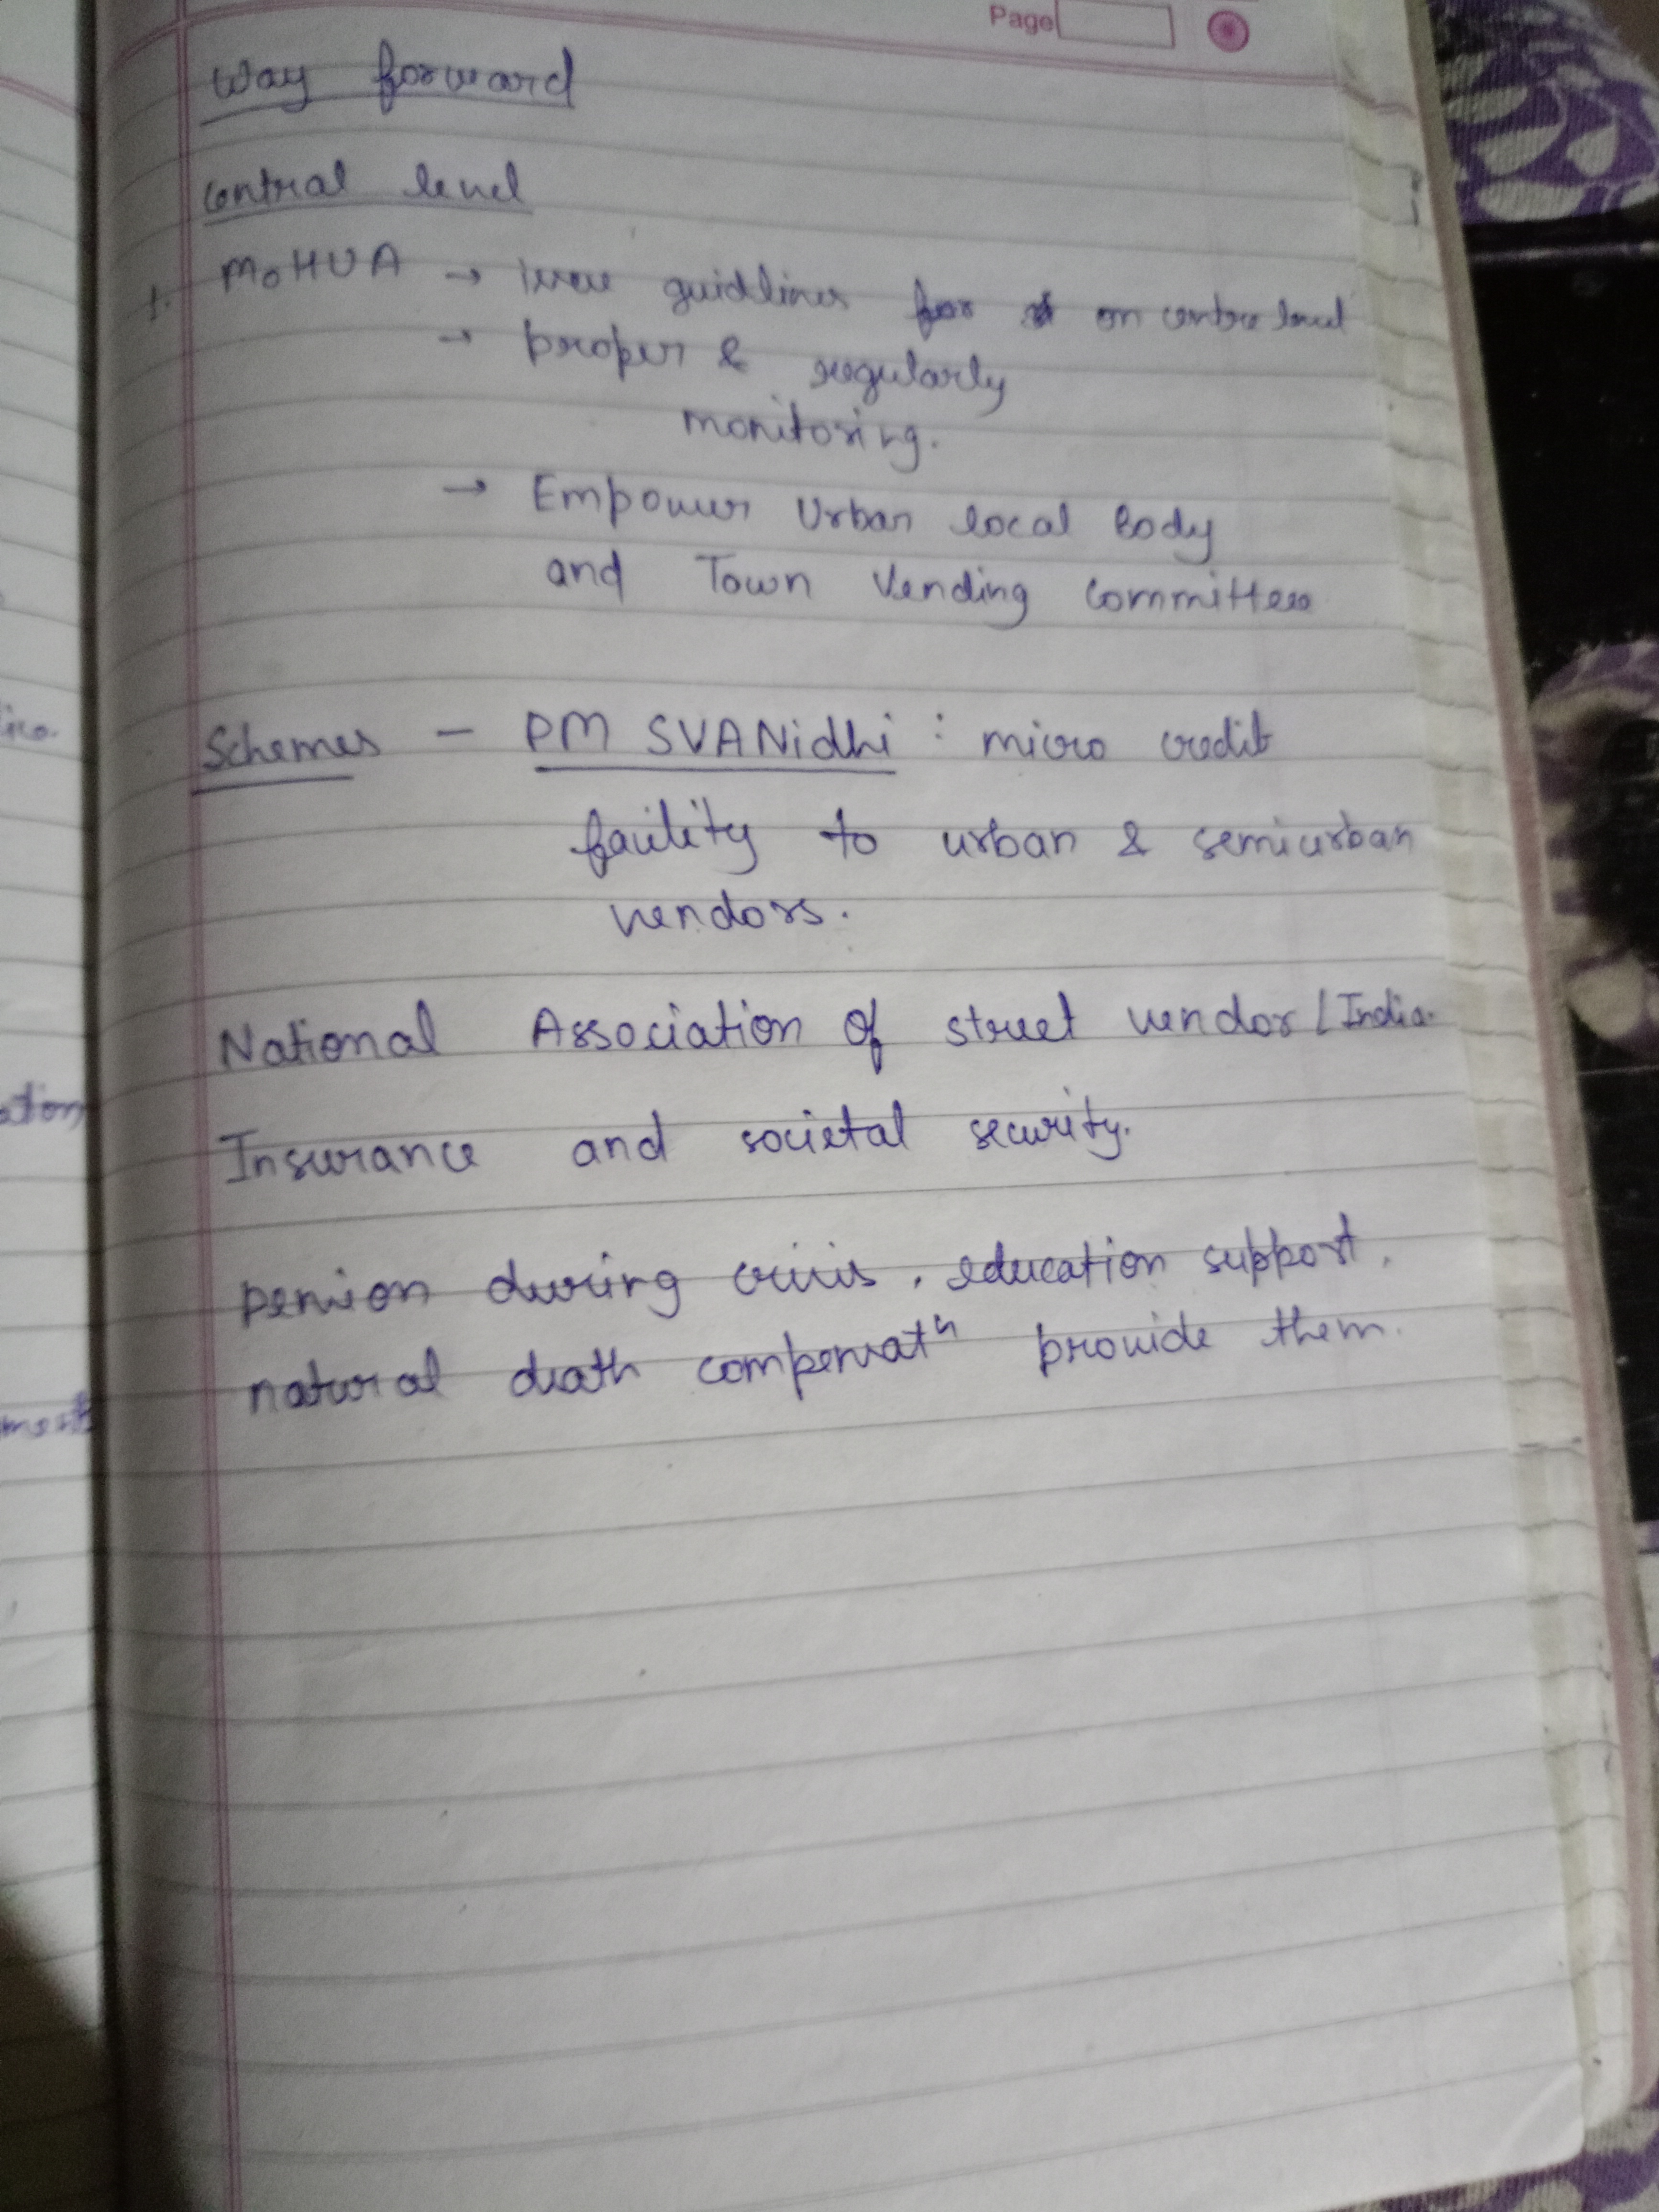 Page
Way forward
Central level
1. MoHUA → Issue guidlines for on centre level
→ proper & regularly
monitoring.
→ Empower Urban local Body
and Town Vending Committees
Schemes - PM SVANidhi : micro credit
facility to urban & semiurban
vendors.
National Association of street vendor / India.
Insurance and societal security.
pension during crisis, education support,
natural death compensatn provide them.
ation